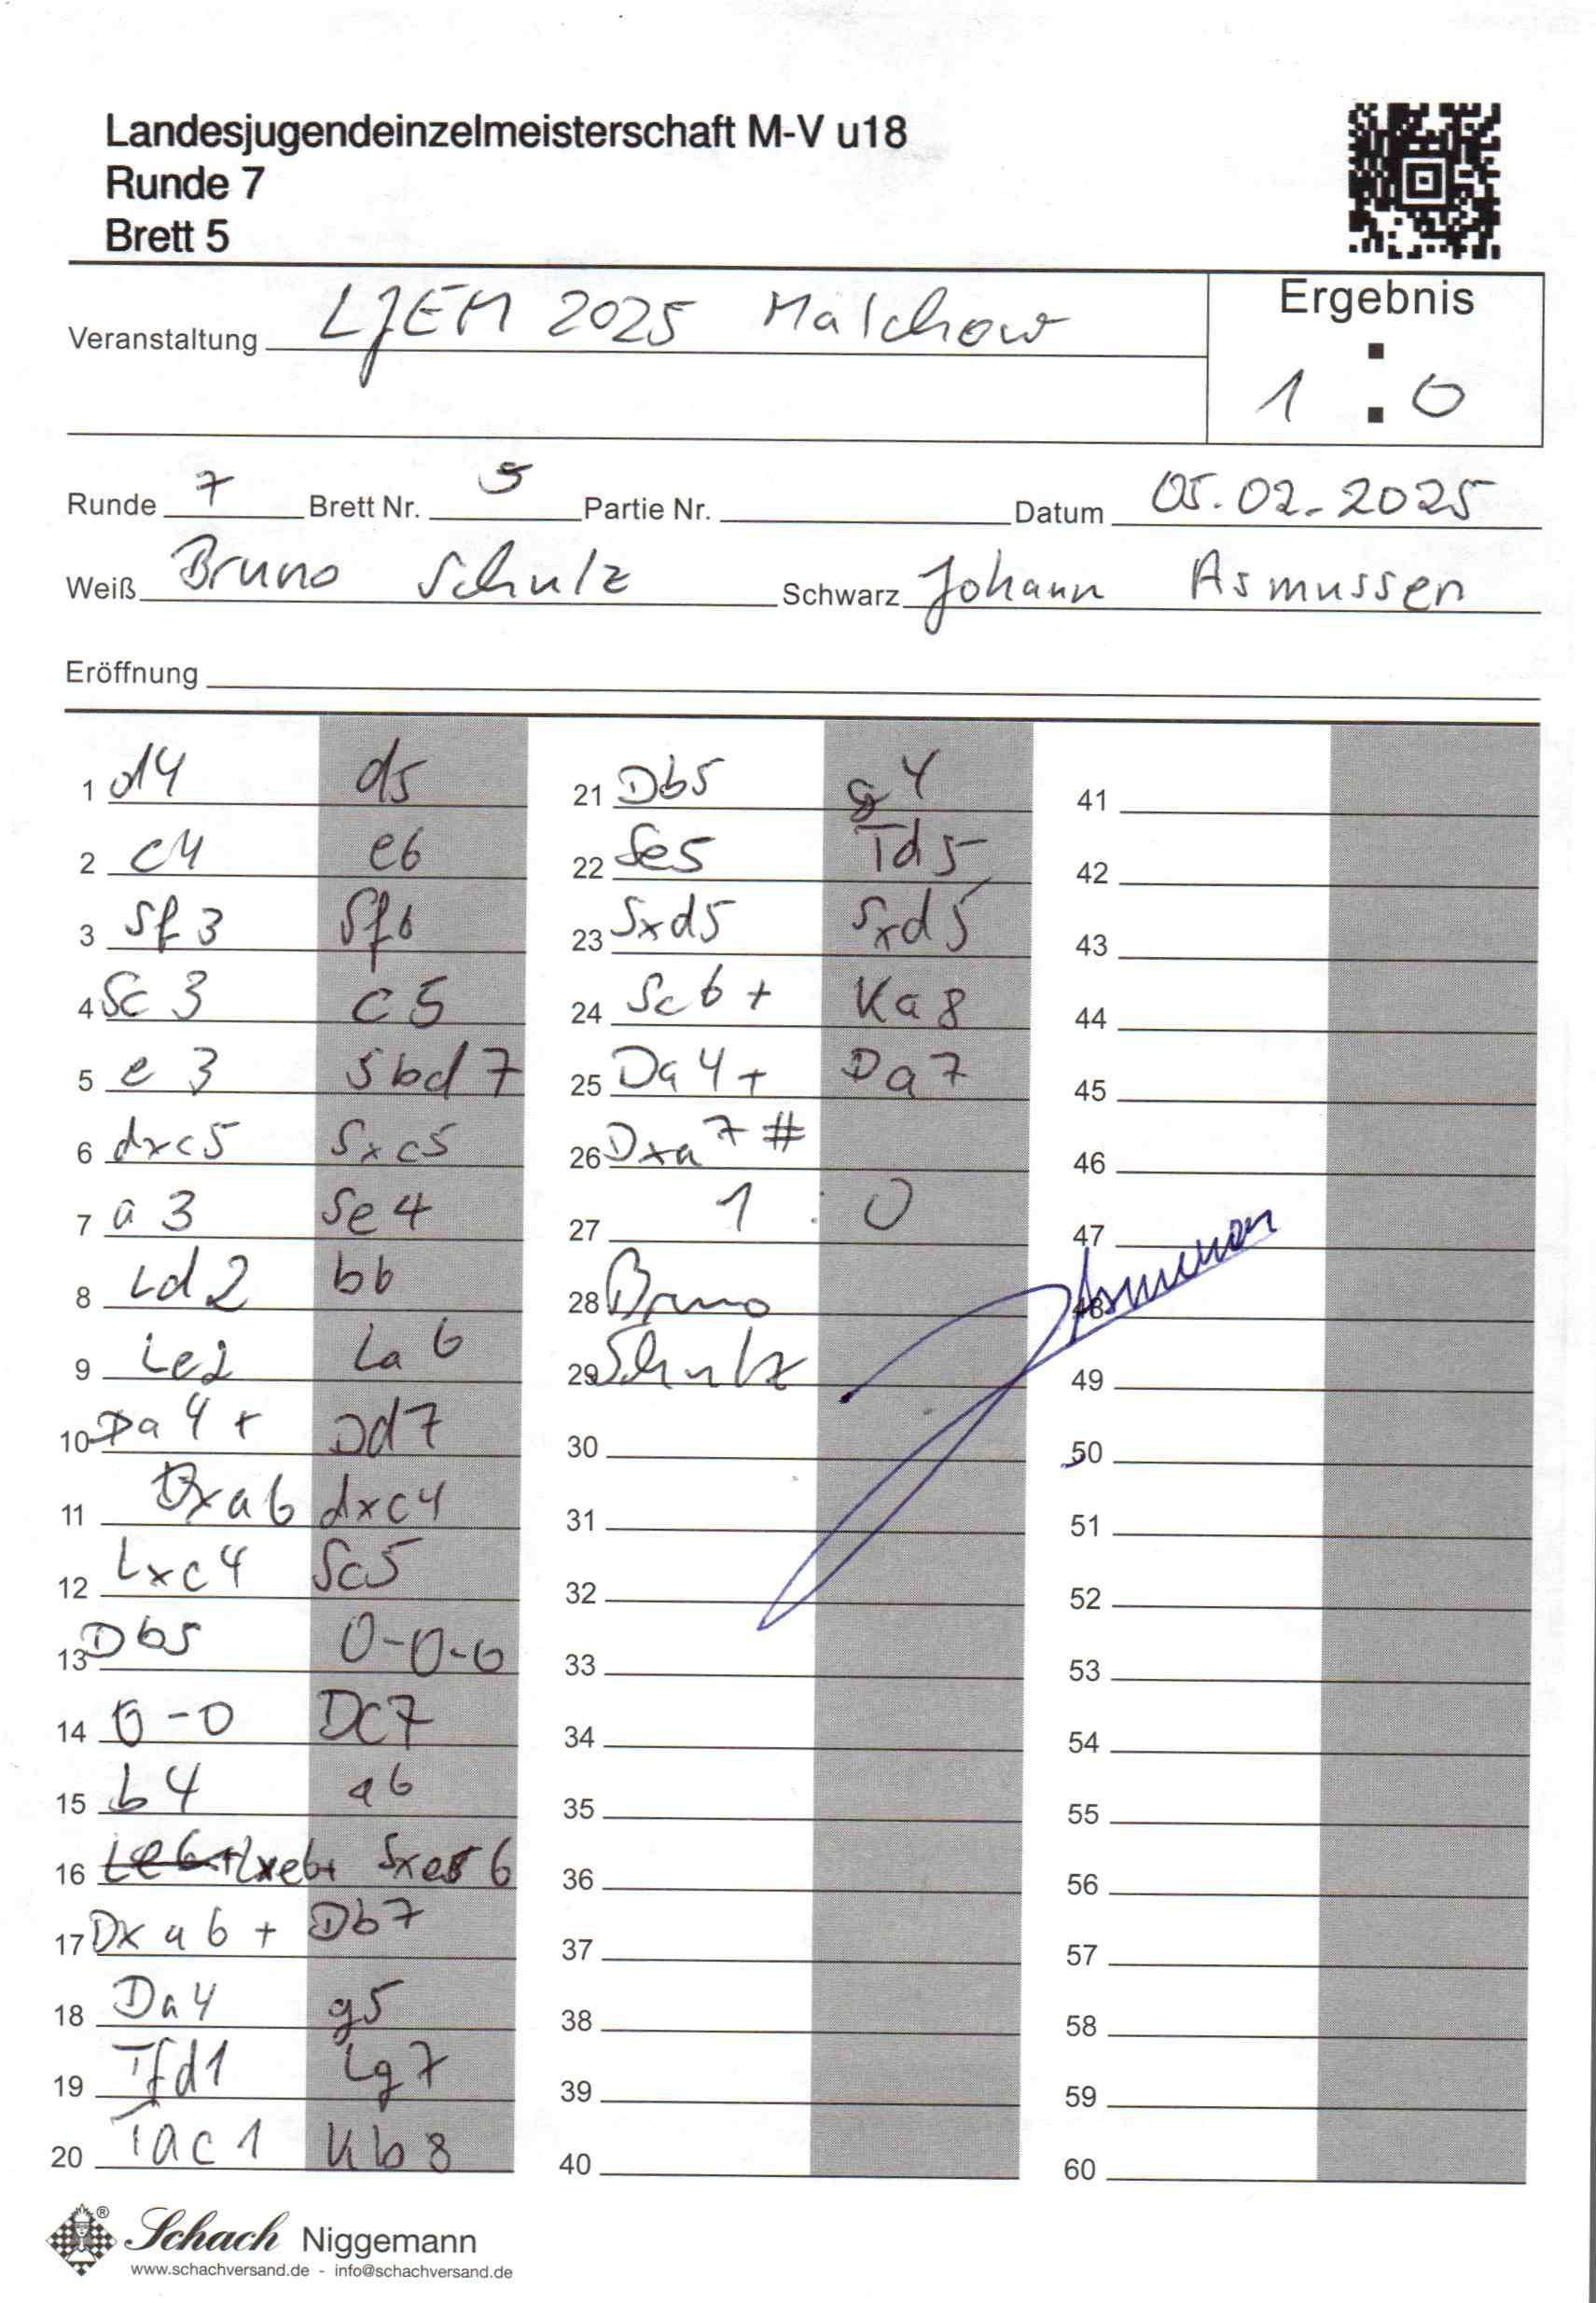 Landesjugendeinzelmeisterschaft M-V u18
Runde 7
Brett 5
Veranstaltung LJEM 2025 Malchow
Ergebnis
1 : 0
Runde 7 Brett Nr. 5 Partie Nr. Datum 05.02.2025
Weiß Bruno Schulz Schwarz Johann Asmussen
Eröffnung
1 d4 d5
2 c4 e6
3 Sf3 Sf6
4 Sc3 c5
5 e3 Sbd7
6 dxc5 Sxc5
7 a3 Se4
8 Ld2 b6
9 Le2 La6
10 Da4+ Dd7
11 Dxa6 dxc4
12 Lxc4 Sc5
13 Db5 0-0-0
14 0-0 Dc7
15 b4 a6
16 Lxe6+ Sxe6
17 Dxa6+ Db7
18 Da4 g5
19 Tfd1 Lg7
20 Tac1 Kb8
21 Db5 g4
22 Se5 Td5
23 Sxd5 Sxd5
24 Sc6+ Ka8
25 Da4+ Da7
26 Dxa7#
27 1 : 0
28 Bruno
29 Schulz
30
31
32
33
34
35
36
37
38
39
40
41
42
43
44
45
46
47
48
Asmussen
49
50
51
52
53
54
55
56
57
58
59
60
Schach Niggemann
www.schachversand.de - info@schachversand.de